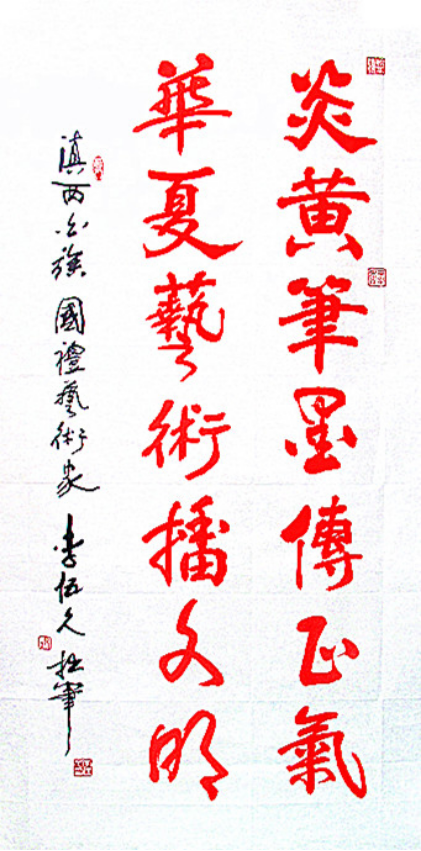 炎黃筆墨傳正氣
華夏藝術播文明
滇西白族 國禮藝術家 李伍久 拙筆